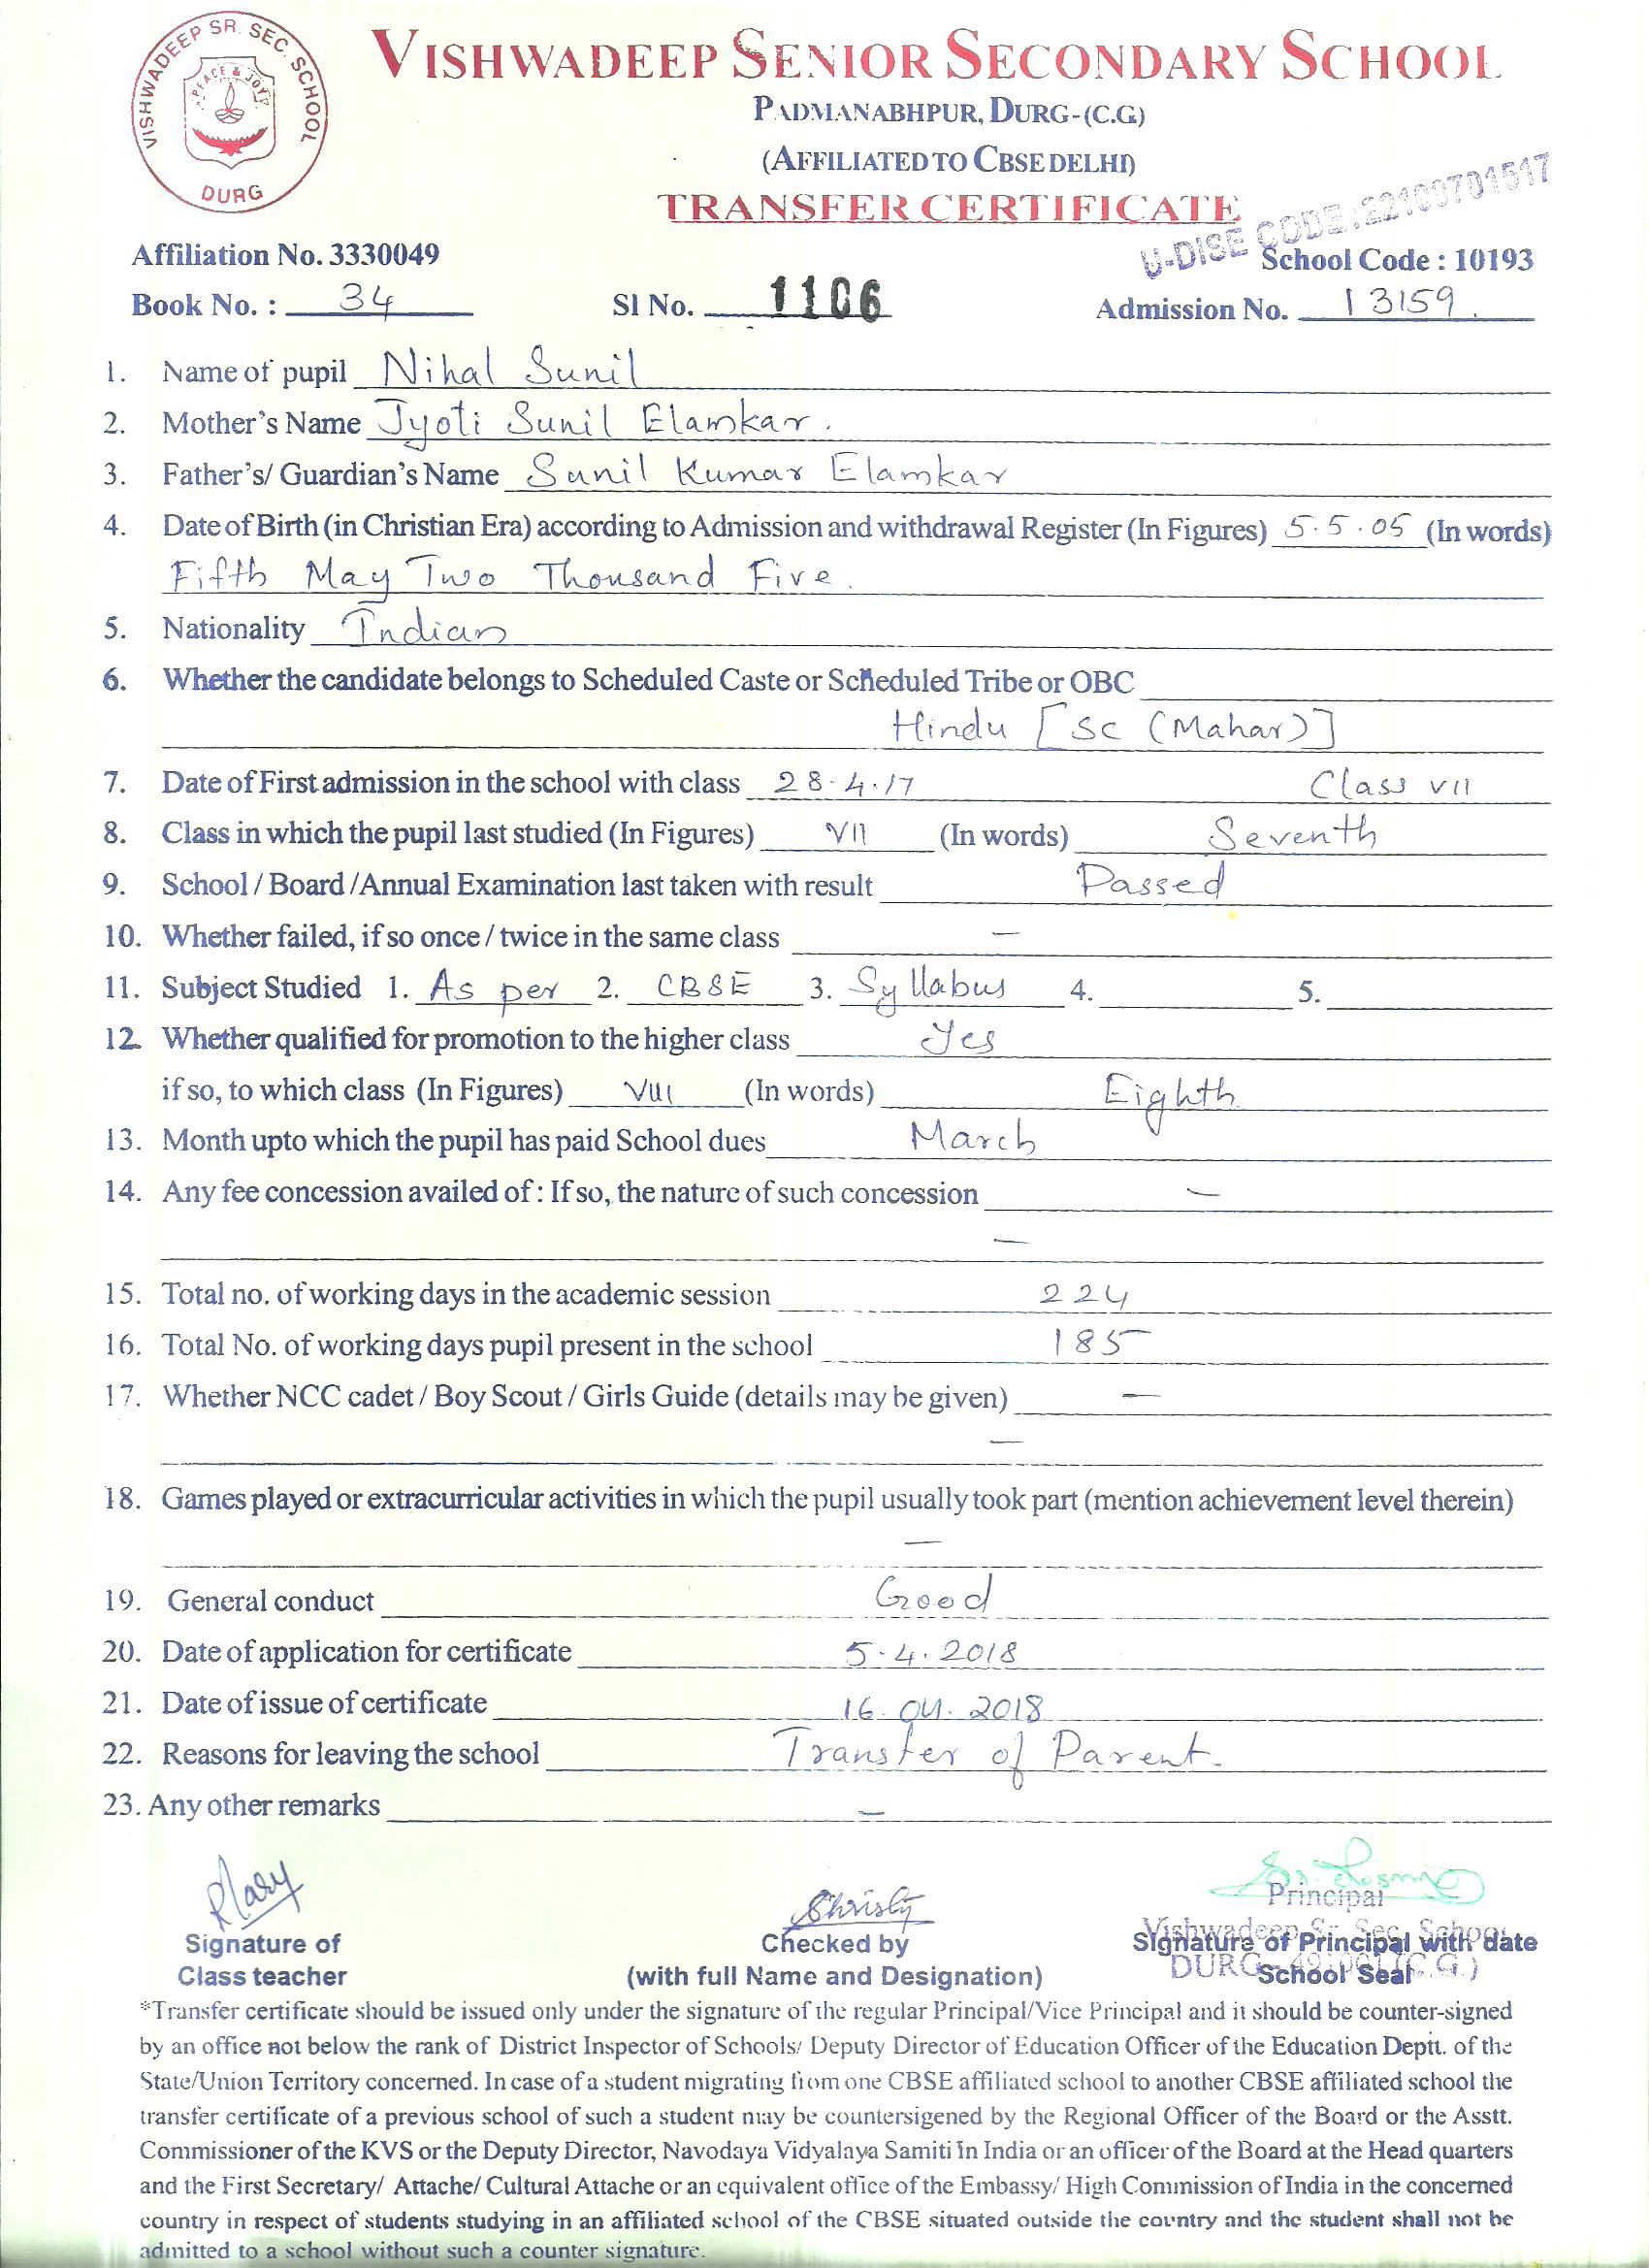 VISHWADEEP SR. SEC. SCHOOL
PEACE & JOY
DURG
VISHWADEEP SENIOR SECONDARY SCHOOL
PADMANABHPUR, DURG-(C.G)
(AFFILIATED TO CBSE DELHI)
TRANSFER CERTIFICATE
U-DISE CODE: 22100701517
Affiliation No. 3330049 School Code : 10193
Book No. : 34 Sl No. 1106 Admission No. 13159.
1. Name of pupil Nihal Sunil
2. Mother's Name Jyoti Sunil Elamkar.
3. Father's/ Guardian's Name Sunil Kumar Elamkar
4. Date of Birth (in Christian Era) according to Admission and withdrawal Register (In Figures) 5.5.05 (In words)
Fifth May Two Thousand Five.
5. Nationality Indian
6. Whether the candidate belongs to Scheduled Caste or Scheduled Tribe or OBC
Hindu [SC (Mahar)]
7. Date of First admission in the school with class 28.4.17 Class VII
8. Class in which the pupil last studied (In Figures) VII (In words) Seventh
9. School / Board /Annual Examination last taken with result Passed
10. Whether failed, if so once / twice in the same class —
11. Subject Studied 1. As per 2. CBSE 3. Syllabus 4. 5.
12. Whether qualified for promotion to the higher class Yes
if so, to which class (In Figures) VIII (In words) Eighth
13. Month upto which the pupil has paid School dues March
14. Any fee concession availed of : If so, the nature of such concession —
—
15. Total no. of working days in the academic session 224
16. Total No. of working days pupil present in the school 185
17. Whether NCC cadet / Boy Scout / Girls Guide (details may be given) —
—
18. Games played or extracurricular activities in which the pupil usually took part (mention achievement level therein)
—
19. General conduct Good
20. Date of application for certificate 5.4.2018
21. Date of issue of certificate 16.04.2018
22. Reasons for leaving the school Transfer of Parent.
23. Any other remarks —
Christy
Principal
Vishwadeep Sr. Sec. School
DURG- 491001 (C.G.)
Signature of Checked by Signature of Principal with date
Class teacher (with full Name and Designation) School Seal
*Transfer certificate should be issued only under the signature of the regular Principal/Vice Principal and it should be counter-signed
by an office not below the rank of District Inspector of Schools/ Deputy Director of Education Officer of the Education Deptt. of the
State/Union Territory concerned. In case of a student migrating from one CBSE affiliated school to another CBSE affiliated school the
transfer certificate of a previous school of such a student may be countersigened by the Regional Officer of the Board or the Asstt.
Commissioner of the KVS or the Deputy Director, Navodaya Vidyalaya Samiti in India or an officer of the Board at the Head quarters
and the First Secretary/ Attache/ Cultural Attache or an equivalent office of the Embassy/ High Commission of India in the concerned
country in respect of students studying in an affiliated school of the CBSE situated outside the country and the student shall not be
admitted to a school without such a counter signature.